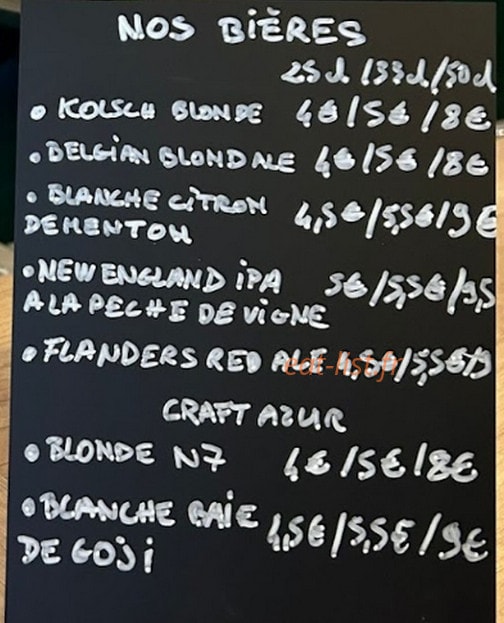 NOS BIÈRES
25d/33d/50d
• KOLSCH BLONDE 4€/5€/8€
• BELGIAN BLOND ALE 4€/5€/8€
• BLANCHE CITRON 4,5€/5,5€/9€
DE MENTON
• NEW ENGLAND IPA 5€/5,5€/9,5
A LA PECHE DE VIGNE
• FLANDERS RED ALE 4,5€/5,5€/9
eat-list.fr
CRAFT AZUR
• BLONDE N7 4€/5€/8€
• BLANCHE BAIE 4,5€/5,5€/9€
DE GOJI